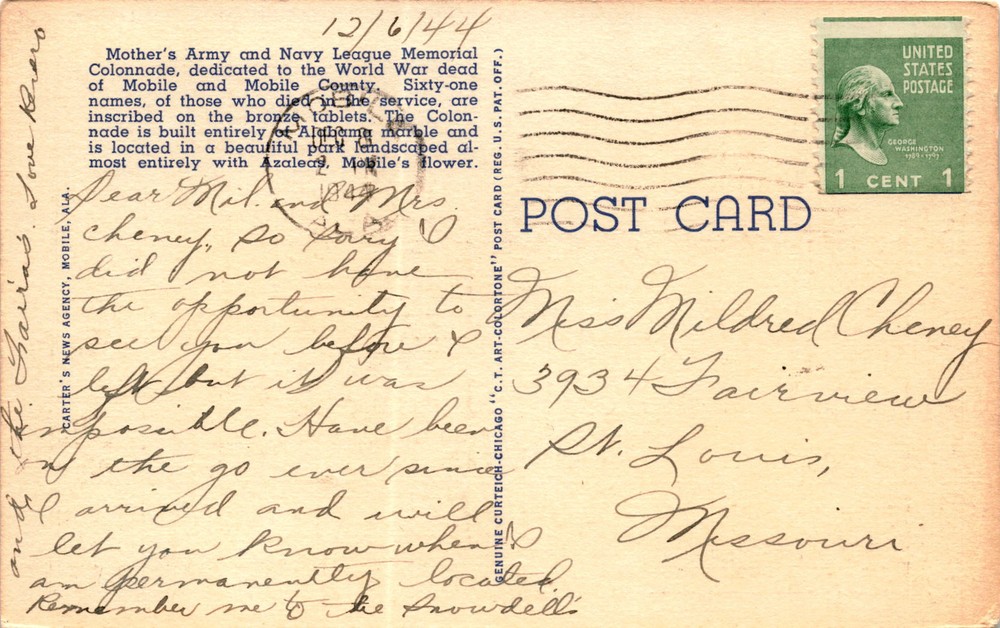 12/6/44
Mother's Army and Navy League Memorial
Colonnade, dedicated to the World War dead
of Mobile and Mobile County. Sixty-one
names, of those who died in the service, are
inscribed on the bronze tablets. The Colon-
nade is built entirely of Alabama marble and
is located in a beautiful park landscaped al-
most entirely with Azaleas, Mobile's flower.
Dear Mil. and Mrs.
Cheney, So sorry I
did not have
the opportunity to
see you before I
left but it was
impossible. Have been
on the go ever since
I arrived and will
let you know when I
am permanently located.
Remember me to the Snowdell's
and the
Love
CARTER'S NEWS AGENCY, MOBILE, ALA.
GENUINE CURTEICH-CHICAGO "C.T. ART-COLORTONE" POST CARD (REG. U.S. PAT. OFF.)
MOBILE
DEC 6
1944
ALA
UNITED
STATES
POSTAGE
GEORGE
WASHINGTON
1789-1797
1 CENT 1
POST CARD
Miss Mildred Cheney
3934 Fairview
St. Louis,
Missouri